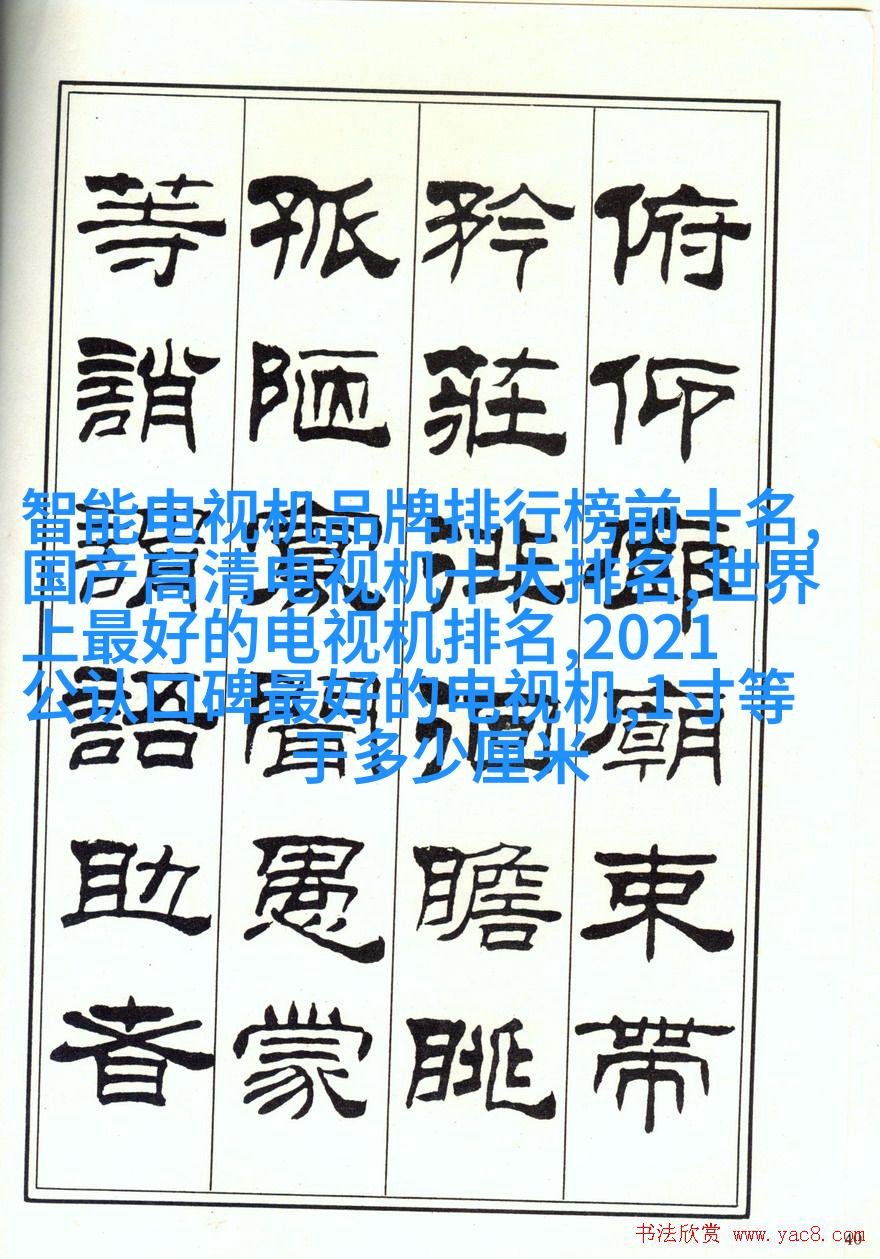 俯仰廊廟束帶
矜莊徘徊瞻眺
孤陋寡聞愚蒙
等誚謂語助者
智能电视机品牌排行榜前十名,
国产高清电视机十大排名,世界
上最好的电视机排名,2021
公认口碑最好的电视机,1寸等
于多少厘米
书法欣赏 www.yac8.com
40